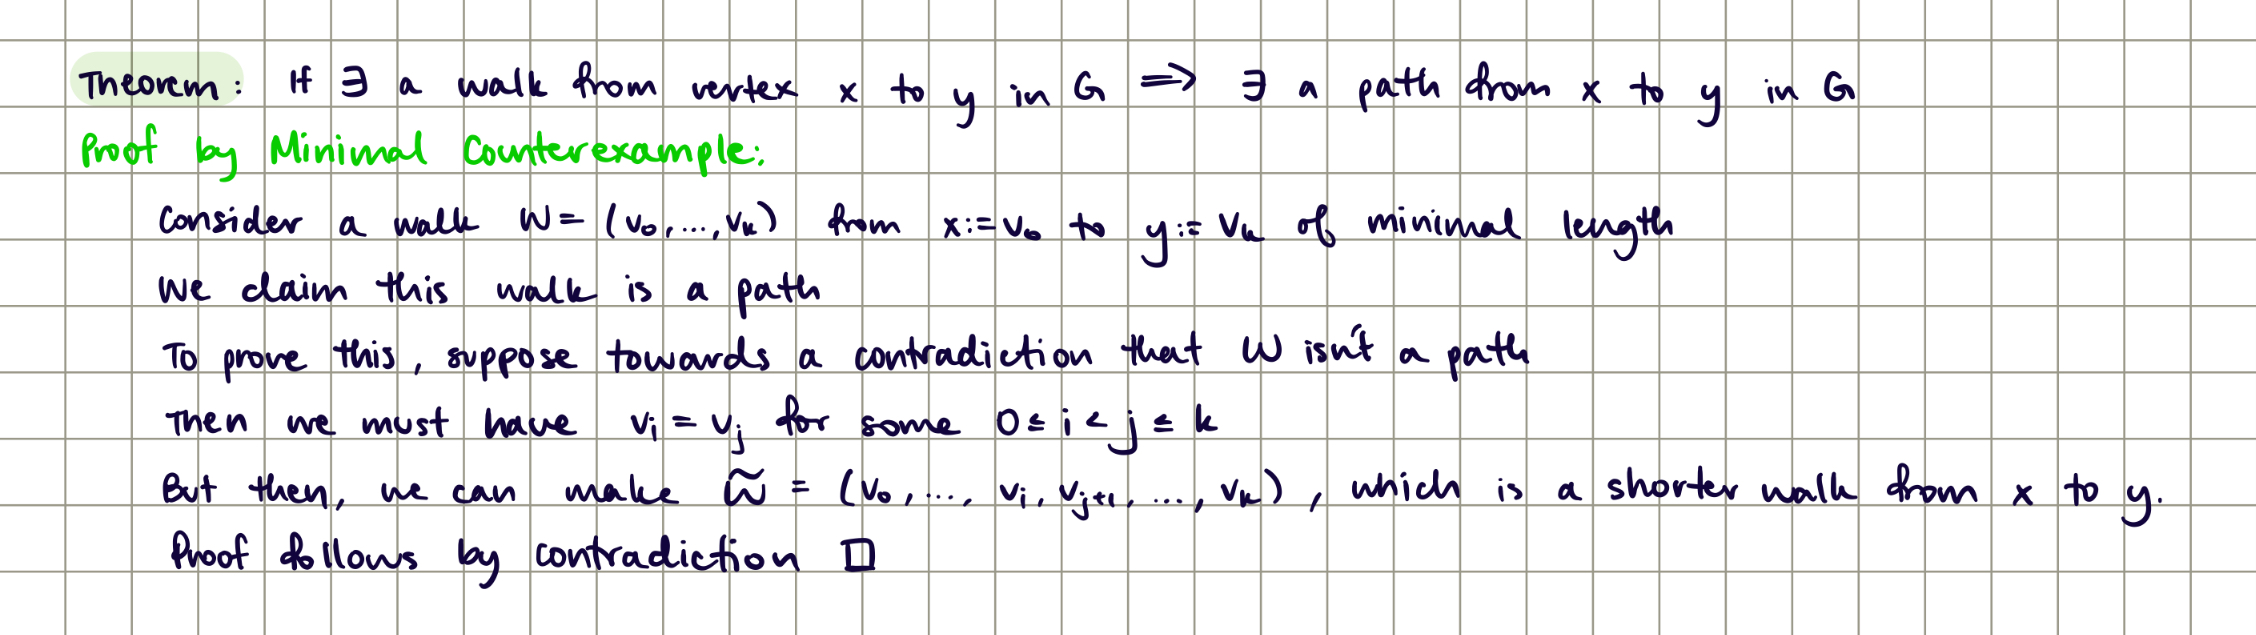 Theorem: If ∃ a walk from vertex x to y in G ⟹ ∃ a path from x to y in G
Proof by Minimal Counterexample:
Consider a walk W = (v₀, ..., vₖ) from x := v₀ to y := vₖ of minimal length
We claim this walk is a path
To prove this, suppose towards a contradiction that W isn't a path
Then we must have vᵢ = vⱼ for some 0 ≤ i < j ≤ k
But then, we can make W̃ = (v₀, ..., vᵢ, vⱼ₊₁, ..., vₖ), which is a shorter walk from x to y.
Proof follows by contradiction □